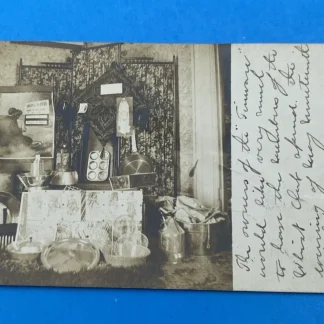 The owners of the "Tinware"
would like very much
to have the members of the
Whist Club attend the
evening of May nineteenth